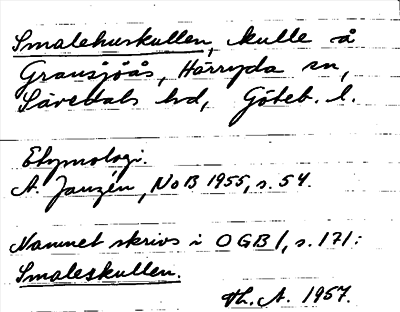 Smalehuskullen, kulle å
Gransjöås, Härryda sn,
Sävedals hd, Göteb. l.
Etymologi.
A. Janzén, NoB 1955, s. 54.
Namnet skrivs i OGB 1, s. 171:
Smaleskullen.
Th. A. 1957.